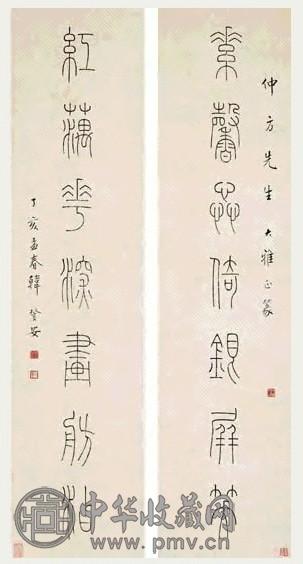 仲方先生 大雅正篆
素馨蕊倚銀屏
紅藕花深畫舫
丁亥孟春韓登安
中华收藏网
www.pmv.cn